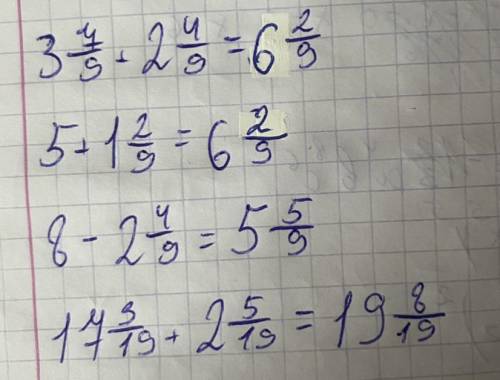 3 7/9 + 2 4/9 = 6 2/9
5 + 1 2/9 = 6 2/9
8 - 2 4/9 = 5 5/9
17 3/19 + 2 5/19 = 19 8/19